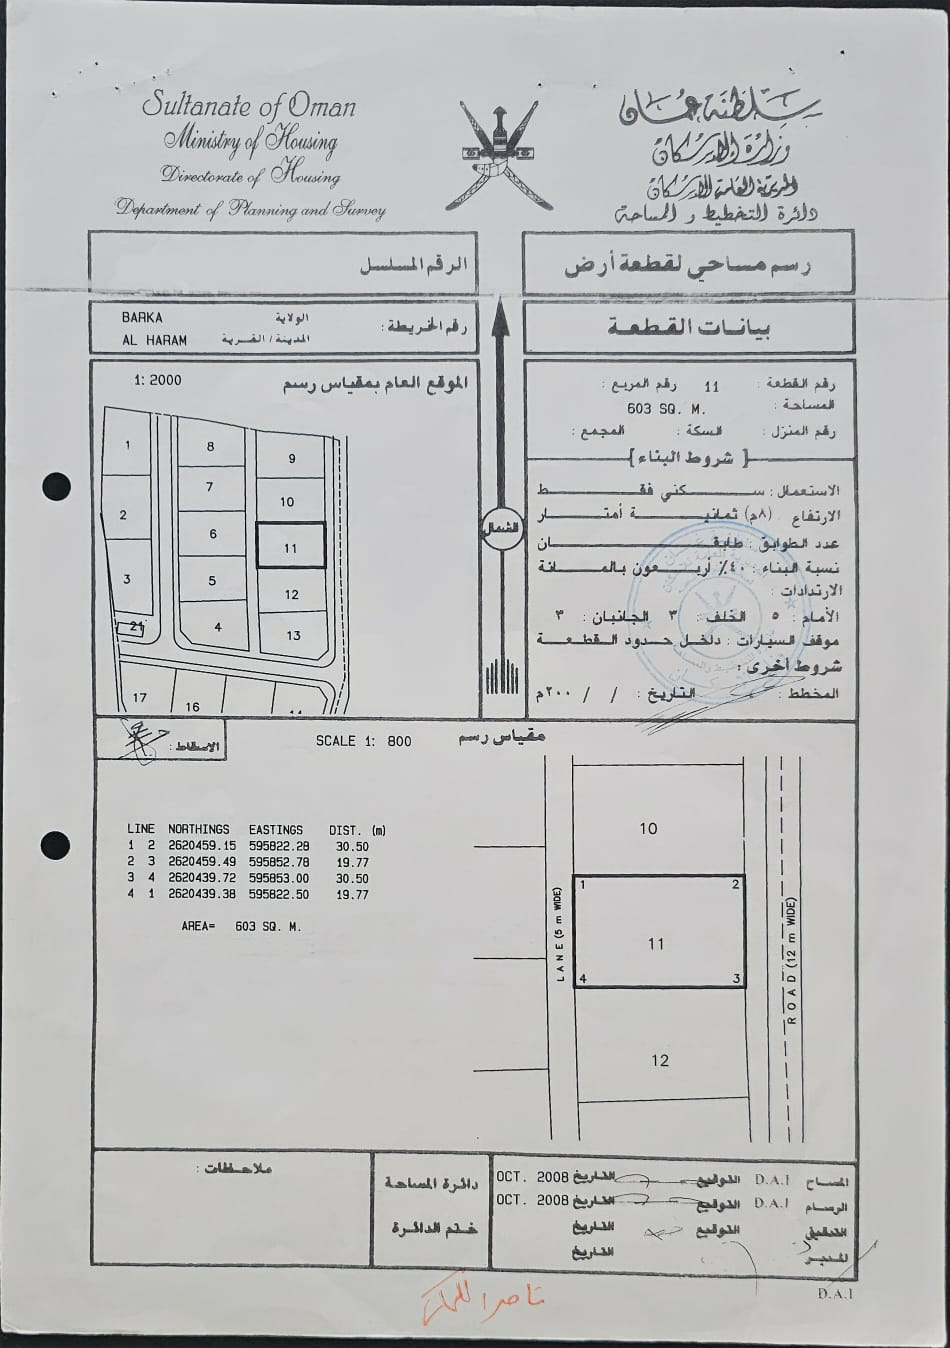 Sultanate of Oman
Ministry of Housing
Directorate of Housing
Department of Planning and Survey
سلطنة عمان
وزارة الإسكان
المديرية العامة للإسكان
دائرة التخطيط والمساحة
الرقم المسلسل
رسم مساحي لقطعة أرض
BARKA الولاية
AL HARAM المدينة/القرية
رقم الخريطة :
بيانات القطعة
1: 2000 الموقع العام بمقياس رسم
1
2
3
21
8
7
6
5
4
9
10
11
12
13
17
16
الشمال
رقم القطعة : 11 رقم المربع :
المساحة : 603 SQ. M.
رقم المنزل : السكة : المجمع :
شروط البناء
الاستعمال : سكني فقط
الارتفاع : (٨م) ثمانية أمتار
عدد الطوابق : طابقان
نسبة البناء : ٤٠٪ أربعون بالمائة
الارتدادات :
الأمام : ٥ الخلف : ٣ الجانبان : ٣
موقف السيارات : داخل حدود القطعة
شروط أخرى :
المخطط : التاريخ : / / ٢٠٠م
الاسقاط :
SCALE 1: 800 مقياس رسم
LINE NORTHINGS EASTINGS DIST. (m)
1 2 2620459.15 595822.28 30.50
2 3 2620459.49 595852.78 19.77
3 4 2620439.72 595853.00 30.50
4 1 2620439.38 595822.50 19.77
AREA= 603 SQ. M.
10
1 2
11
4 3
12
LANE (5 m WIDE)
ROAD (12 m WIDE)
ملاحظات :
دائرة المساحة
ختم الدائرة
المساح D.A.I التوقيع التاريخ OCT. 2008
الرسام D.A.I التوقيع التاريخ OCT. 2008
التدقيق التوقيع التاريخ
المدير التاريخ
D.A.I